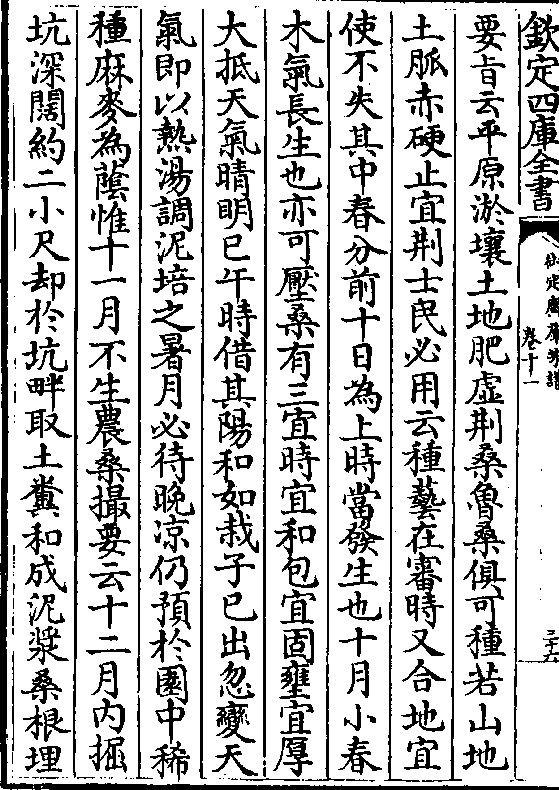 欽定四庫全書
卷十一
三十六
要旨云平原淤壤土地肥虛荆桑魯桑俱可種若山地
土脈赤硬止宜荆士民必用云種藝在審時又合地宜
使不失其中春分前十日為上時當發生也十月小春
木氣長生也亦可壓桑有三宜時宜和包宜固壅宜厚
大抵天氣晴明巳午時借其陽和如栽子已出忽變天
氣即以熱湯調泥培之暑月必待晩凉仍預於園中稀
種麻麥為蔭惟十一月不生農桑撮要云十二月内掘
坑深闊約二小尺却於坑畔取土糞和成泥漿桑根埋